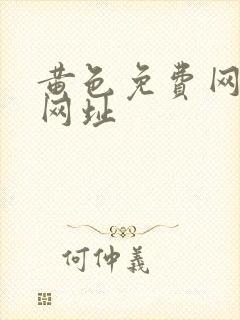 黄色免费网
网址
何仲義